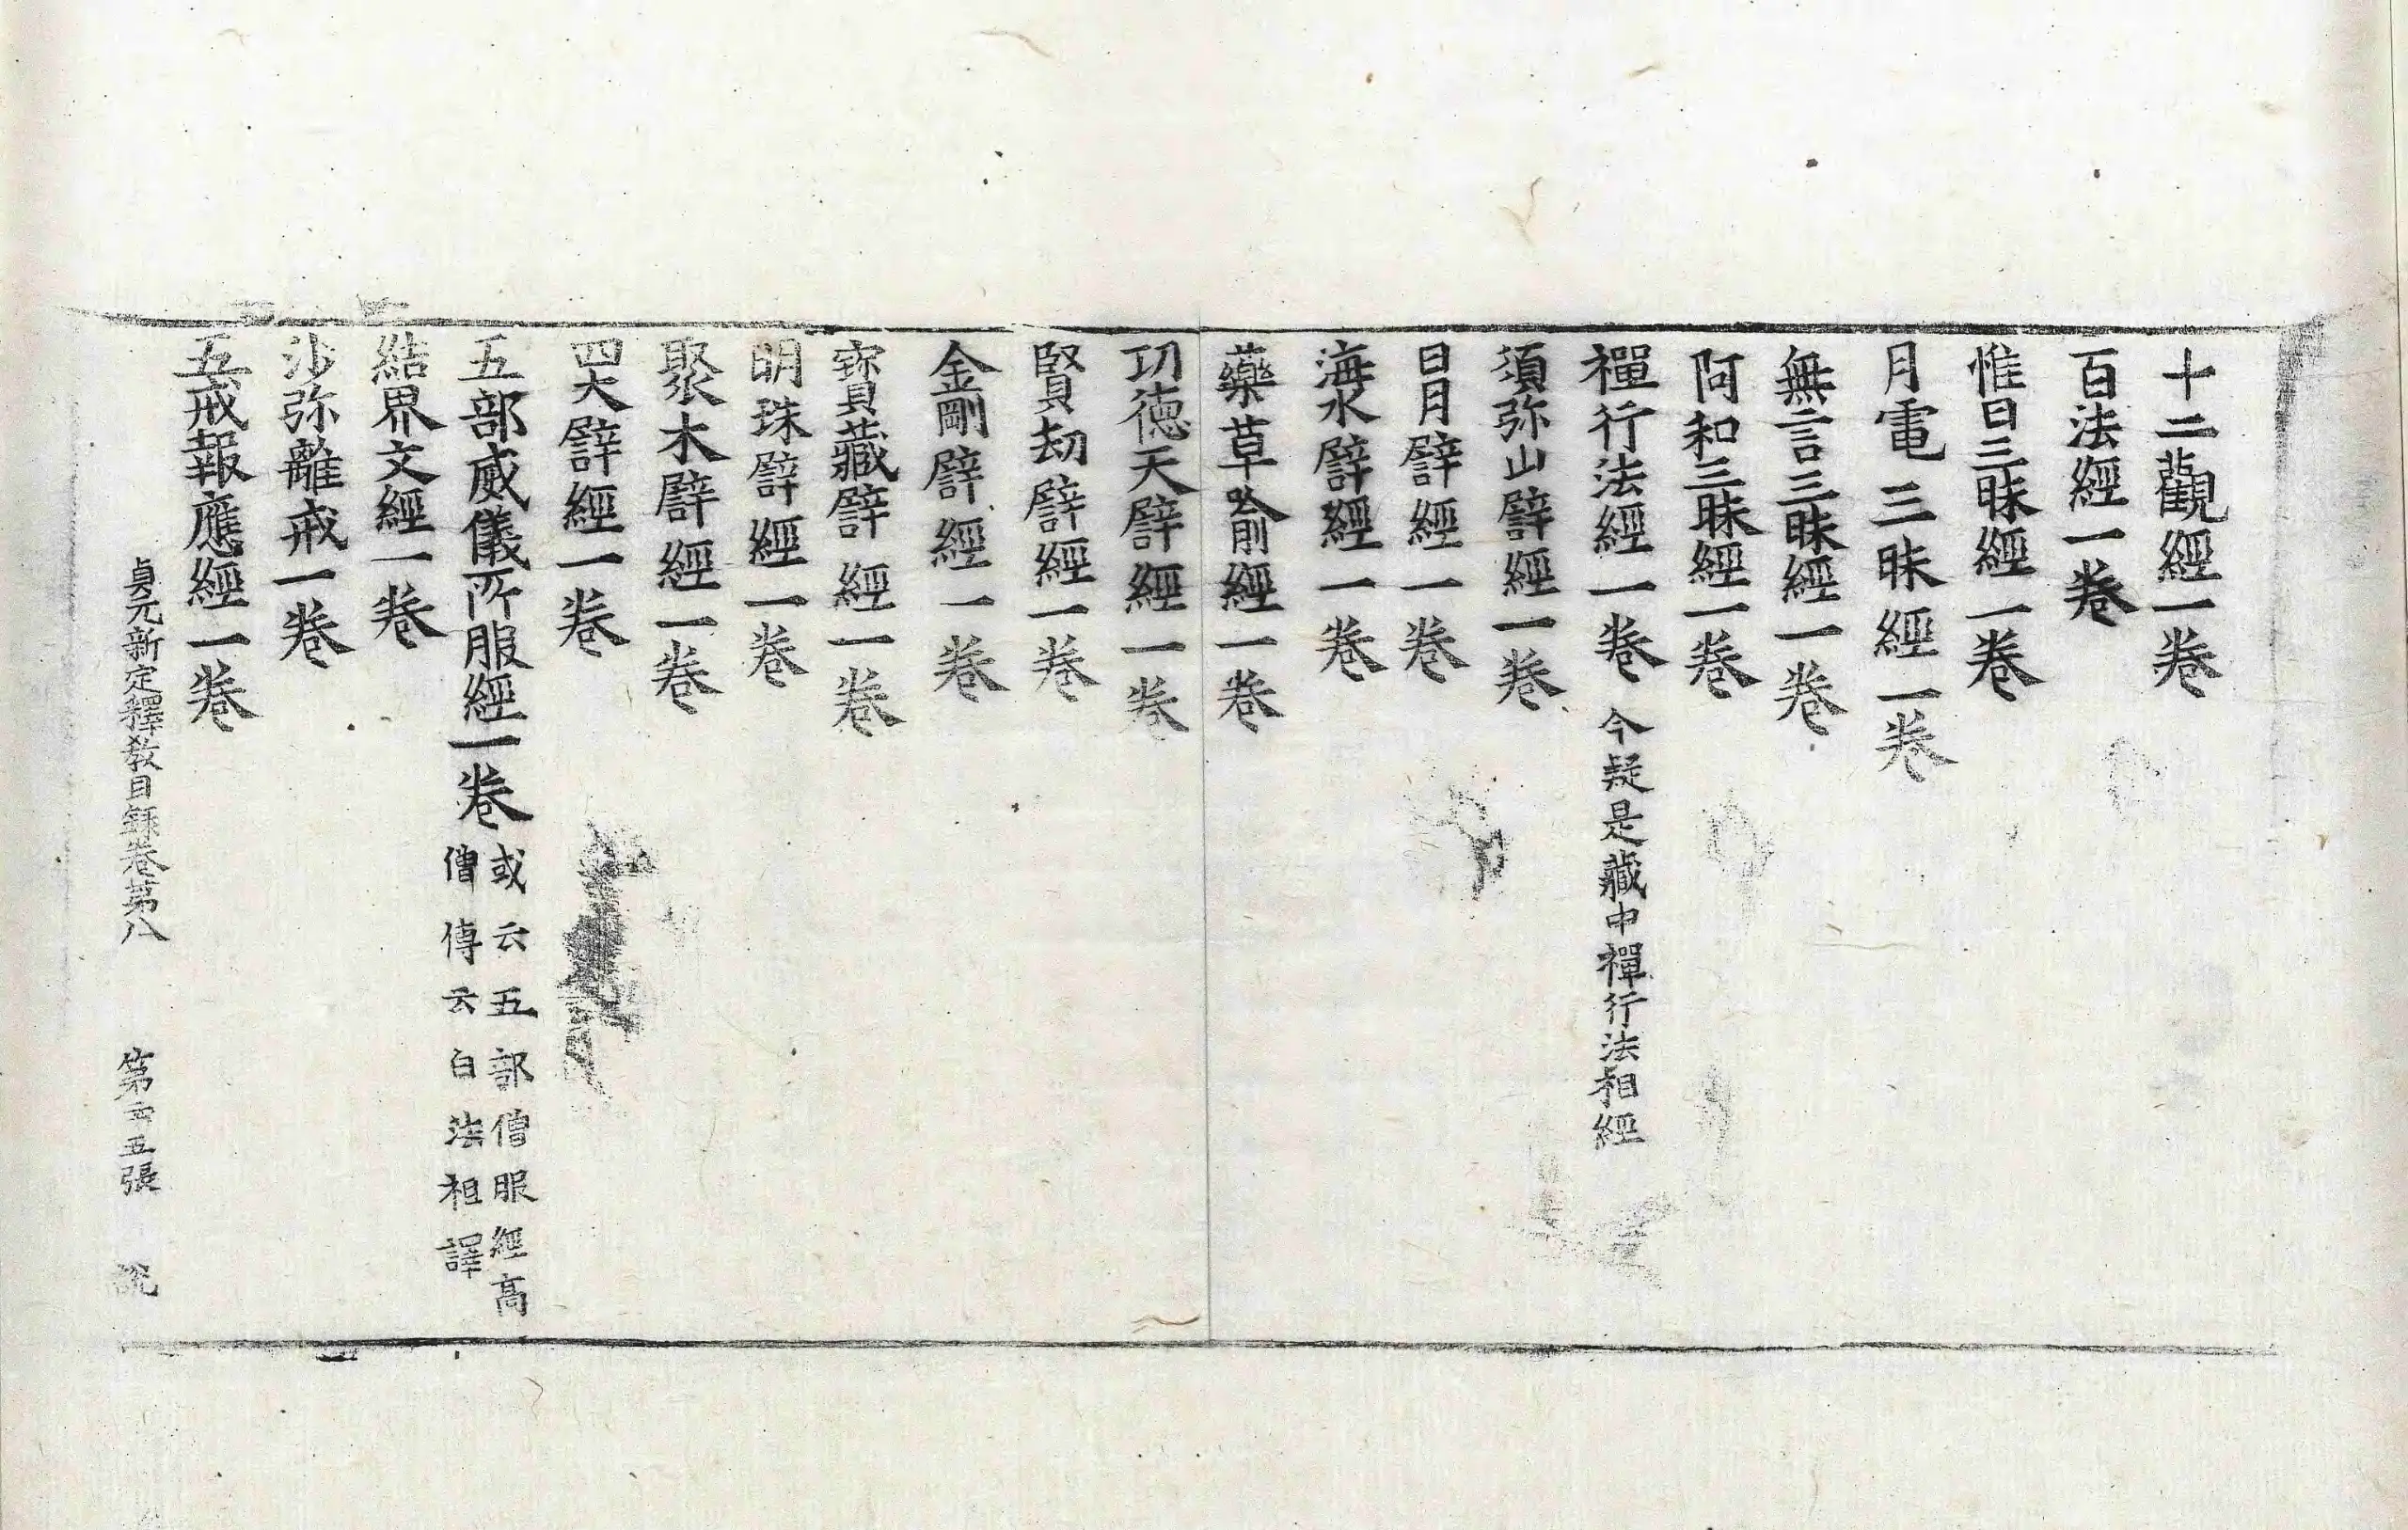 十二觀經一卷
百法經一卷
惟日三昧經一卷
月電三昧經一卷
無言三昧經一卷
阿和三昧經一卷
禪行法經一卷 今疑是藏中禪行法相經
須弥山譬經一卷
日月譬經一卷
海水譬經一卷
藥草喻經一卷
功德天譬經一卷
賢劫譬經一卷
金剛譬經一卷
寶藏譬經一卷
明珠譬經一卷
聚木譬經一卷
四大譬經一卷
五部威儀所服經一卷 或云五部僧服經高
僧傳云白法祖譯
結界文經一卷
沙弥離戒一卷
五戒報應經一卷
貞元新定釋教目錄卷第八 第五張 說